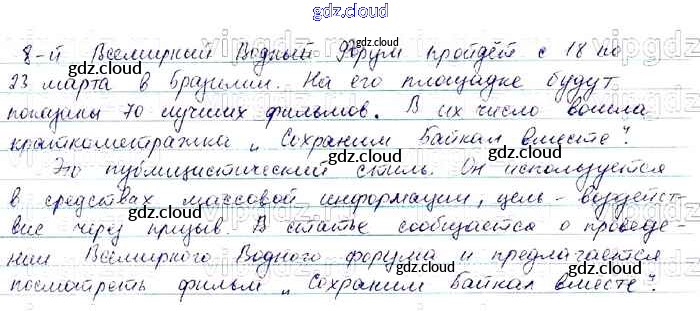 gdz.cloud
8-й Всемирный Водный Форум пройдёт с 18 по
23 марта в Бразилии. На его площадке будут
показаны 70 лучших фильмов. В их число вошла
короткометражка „Сохраним Байкал вместе".
Это публицистический стиль. Он используется
в средствах массовой информации, цель - воздейст-
вие через призыв. В статье сообщается о проведе-
нии Всемирного Водного форума и предлагается
посмотреть фильм „Сохраним Байкал вместе".